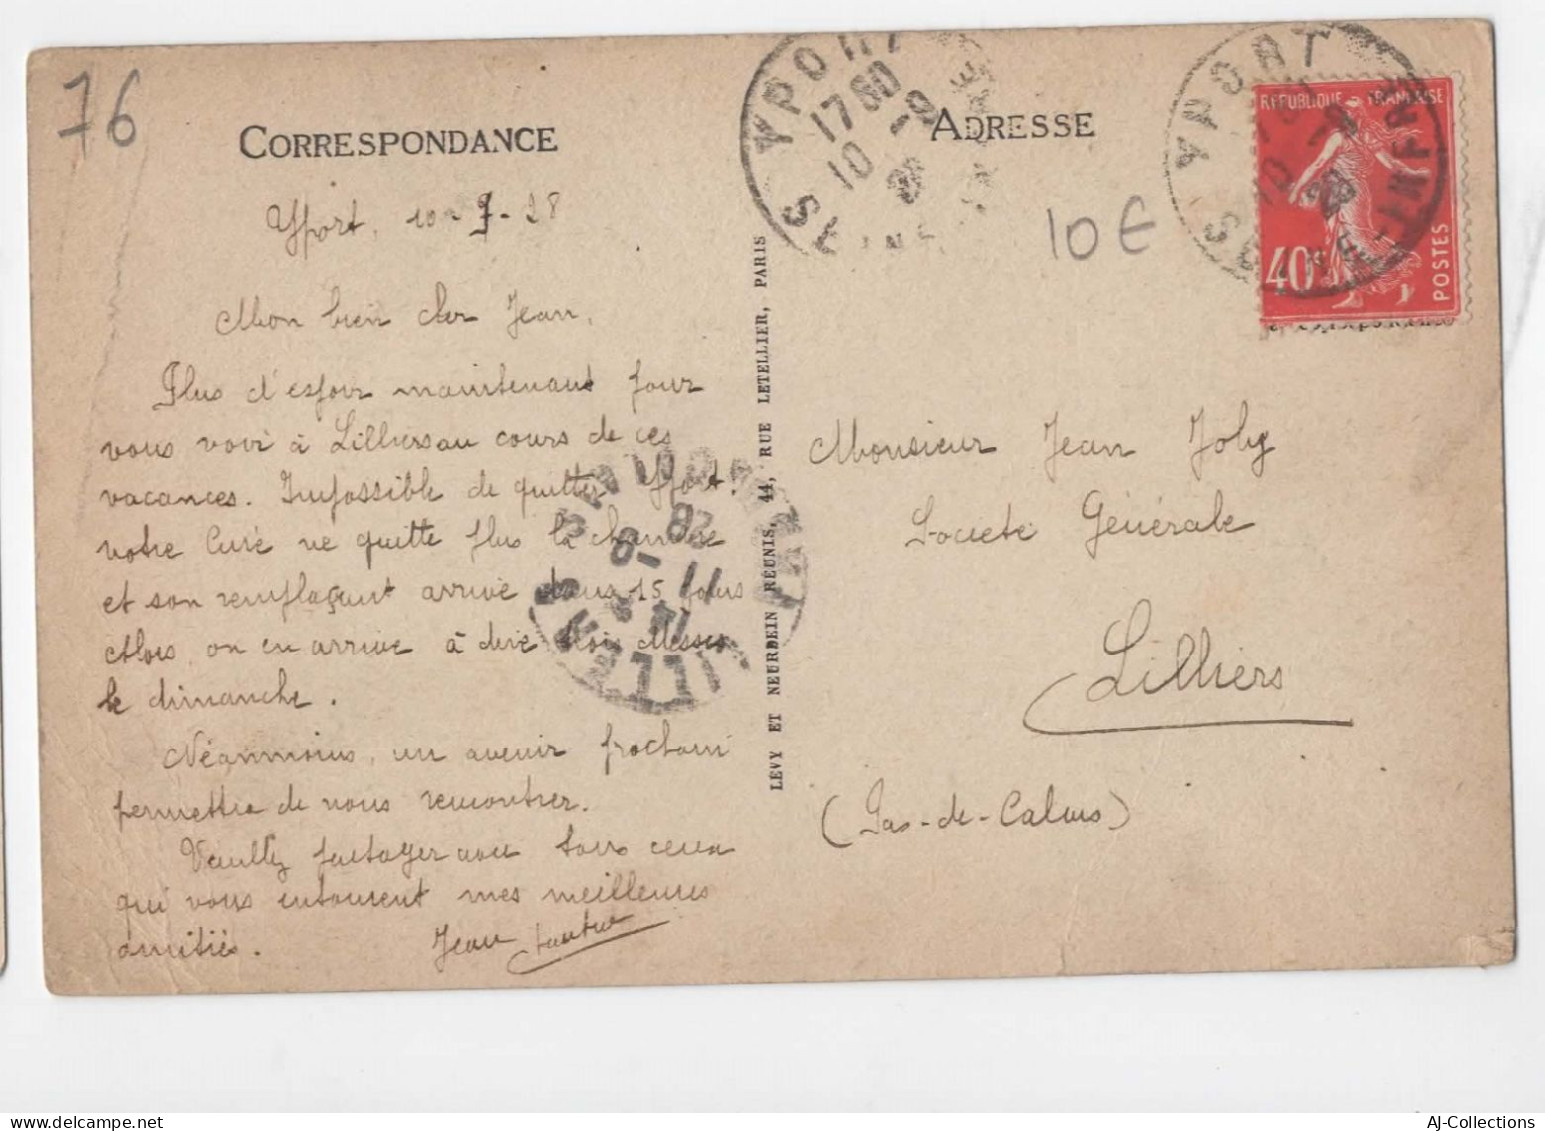 76
CORRESPONDANCE
Yport, 10-9-28
Mon bien cher Jean,
Plus d'espoir maintenant pour
vous voir à Lilliers au cours de ces
vacances. Impossible de quitter Yport.
votre Curé ne quitte plus la chambre
et son remplaçant arrive dans 15 jours
Alors, on en arrive à dire trois Messes
le dimanche.
Néanmoins, un avenir prochain
permettra de nous rencontrer.
Veuillez partager avec tous ceux
qui vous entourent mes meilleures
amitiés.
Jean
LEVY ET NEURDEIN RÉUNIS, 44, RUE LETELLIER, PARIS
YPORT
17 80
10 -9
28
SEINE
ADRESSE
10 €
YPORT
10 -9
28
SEINE-INFRE
REPUBLIQUE FRANÇAISE
40c
POSTES
Monsieur Jean Joly
Société Générale
Lilliers
(Pas-de-Calais)
PAS DE CALAIS
11 -9
28
LILLERS
AJ-Collections